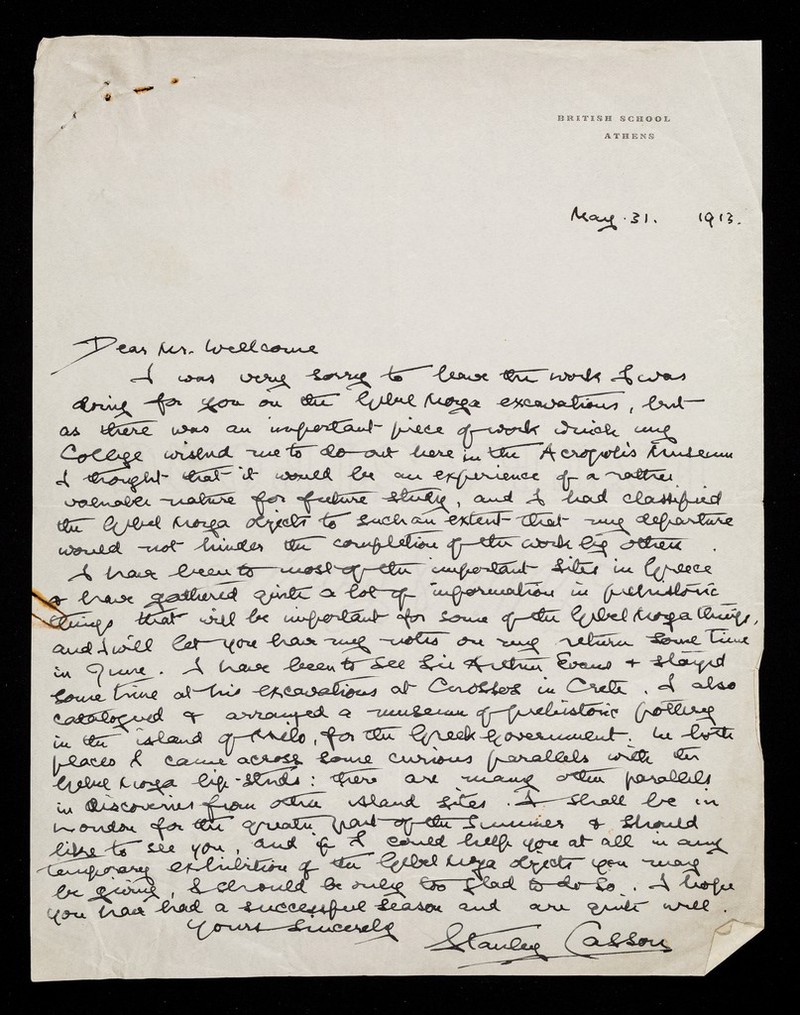 BRITISH SCHOOL
ATHENS
May. 31. 1913.
Dear Mr. Wellcome
I was very sorry to leave the work I was
doing for you on the Gebel Moya excavations, but
as there was an important piece of work which my
College wished me to do out here in the Acropolis Museum
I thought that it would be an experience of a rather
valuable nature for future study, and I had classified
the Gebel Moya objects to such an extent that my departure
would not hinder the completion of the work by others.
I have been to most of the important sites in Greece
& have gathered quite a lot of information in prehistoric
things that will be important for some of the Gebel Moya things,
and I will let you have my notes on my return some time
in June. I have been to see Sir Arthur Evans & stayed
some time at his excavations at Cnossos in Crete. I also
catalogued & arranged a museum of prehistoric pottery
in the island of Melo, for the Greek Government. In both
places I came across some curious parallels with the
Gebel Moya lip-studs: there are many other parallels
in discoveries from other island sites. I shall be in
London for the greater part of the Summer & should
like to see you, and if I could help you at all in any
temporary exhibition of the Gebel Moya objects you may
be giving, I should be only too glad to do so. I hope
you have had a successful season and are quite well.
Yours sincerely
Stanley Casson